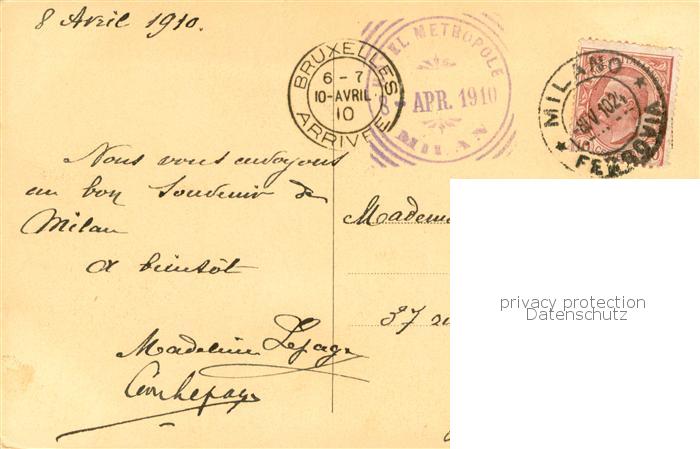 8 Avril 1910.
BRUXELLES
6-7
10-AVRIL
10
ARRIVEE
EL METROPOLE
8 APR. 1910
MILAN
MILANO
FERROVIA
Nous vous envoyons
un bon souvenir de
Milan
A bientôt
Madeleine Lepage
Madame
37
privacy protection
Datenschutz